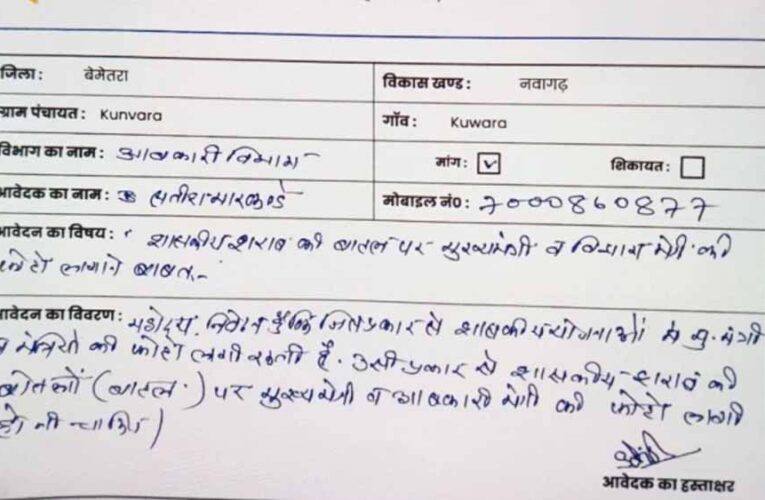 जिला: बेमेतरा
विकास खण्ड: नवागढ़
ग्राम पंचायत: Kunvara
गाँव: Kuwara
विभाग का नाम: आबकारी विभाग
मांग: ☑ शिकायत: ☐
आवेदक का नाम: सतीश मारकण्डे
मोबाइल नं0: 7000860877
आवेदन का विषय: शासकीय शराब की बाटल पर मुख्यमंत्री व विभाग मंत्री की
फोटो लगाने बाबत.-
आवेदन का विवरण: महोदय, निवेदन है कि जिस प्रकार से शासकीय योजनाओं में मु. मंत्री
व मंत्रियो की फोटो लगी रहती है. उसी प्रकार से शासकीय शराब की
बोतलों (बाटल.) पर मुख्यमंत्री व आबकारी मंत्री की फोटो लगी
होनी चाहिए)
आवेदक का हस्ताक्षर